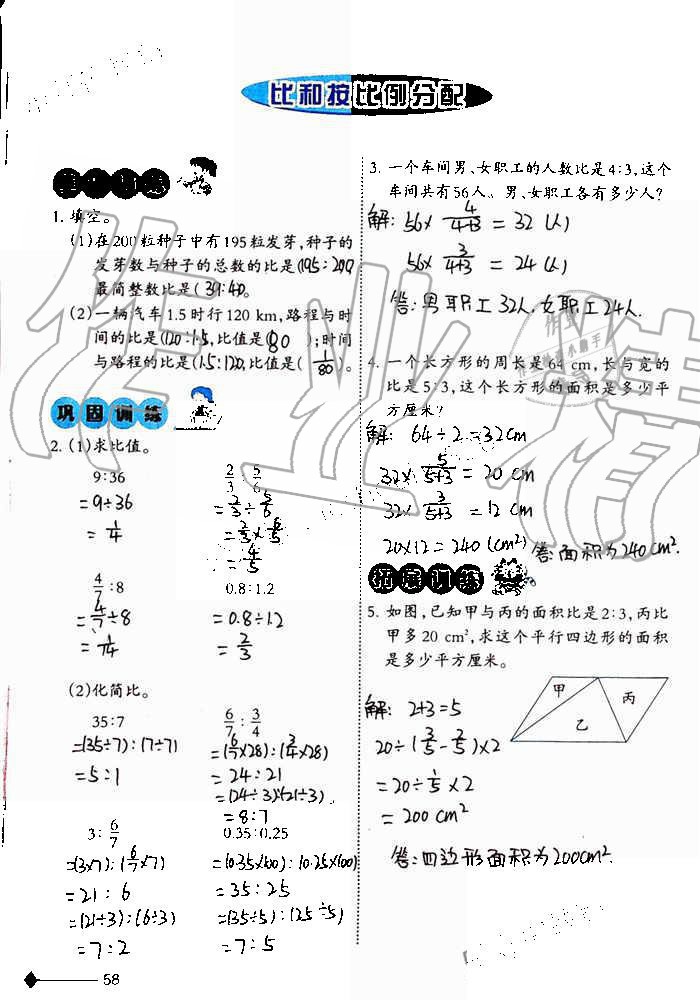 比和按比例分配
1. 填空。
(1)在200粒种子中有195粒发芽,种子的
发芽数与种子的总数的比是(195:200),
最简整数比是(39:40)。
(2)一辆汽车1.5时行120 km,路程与时
间的比是(120:1.5),比值是(80);时间
与路程的比是(1.5:120),比值是(1/80)。
巩固训练
2. (1)求比值。
9:36
=9÷36
=1/4
2/3:5/6
=2/3÷5/6
=2/3×6/5
=4/5
4/7:8
=4/7÷8
=1/14
0.8:1.2
=0.8÷1.2
=2/3
(2)化简比。
35:7
=(35÷7):(7÷7)
=5:1
6/7:3/4
=(6/7×28):(3/4×28)
=24:21
=(24÷3):(21÷3)
=8:7
3:6/7
=(3×7):(6/7×7)
=21:6
=(21÷3):(6÷3)
=7:2
0.35:0.25
=(0.35×100):(0.25×100)
=35:25
=(35÷5):(25÷5)
=7:5
58
3. 一个车间男、女职工的人数比是4:3,这个
车间共有56人。男、女职工各有多少人?
解: 56×4/(4+3)=32(人)
56×3/(4+3)=24(人)
答:男职工32人,女职工24人.
4. 一个长方形的周长是64 cm,长与宽的
比是5:3,这个长方形的面积是多少平
方厘米?
解: 64÷2=32cm
32×5/(5+3)=20 cm
32×3/(5+3)=12 cm
20×12=240(cm²) 答:面积为240cm².
拓展训练
5. 如图,已知甲与丙的面积比是2:3,丙比
甲多20 cm²,求这个平行四边形的面积
是多少平方厘米。
甲
乙
丙
解: 2+3=5
20÷(3/5-2/5)×2
=20÷1/5×2
=200cm²
答:四边形面积为200cm².